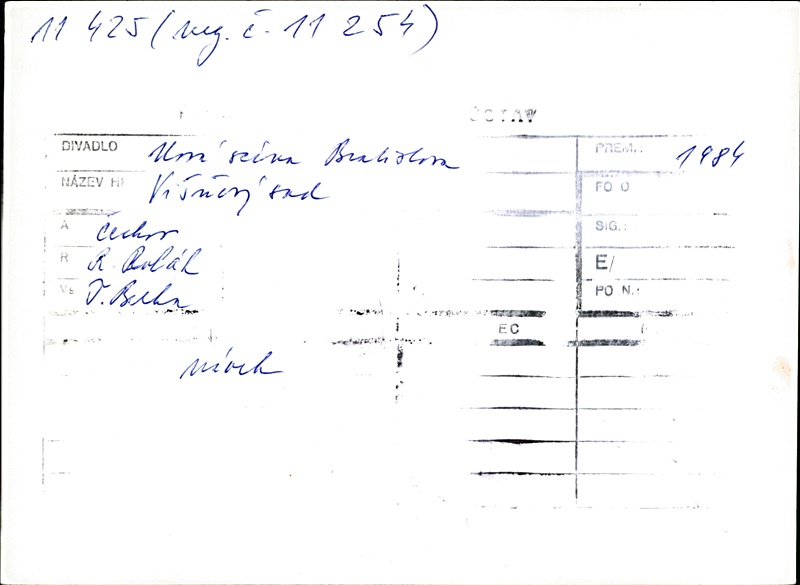 11 425 (neg. č. 11 254)
ÚSTAV
DIVADLO Nová scéna Bratislava PREM.: 1984
NÁZEV H Višňový sad FO O
A Čechov SIG.:
R R. Polák E/
Vs J. Berka PO N.:
EC
návrh